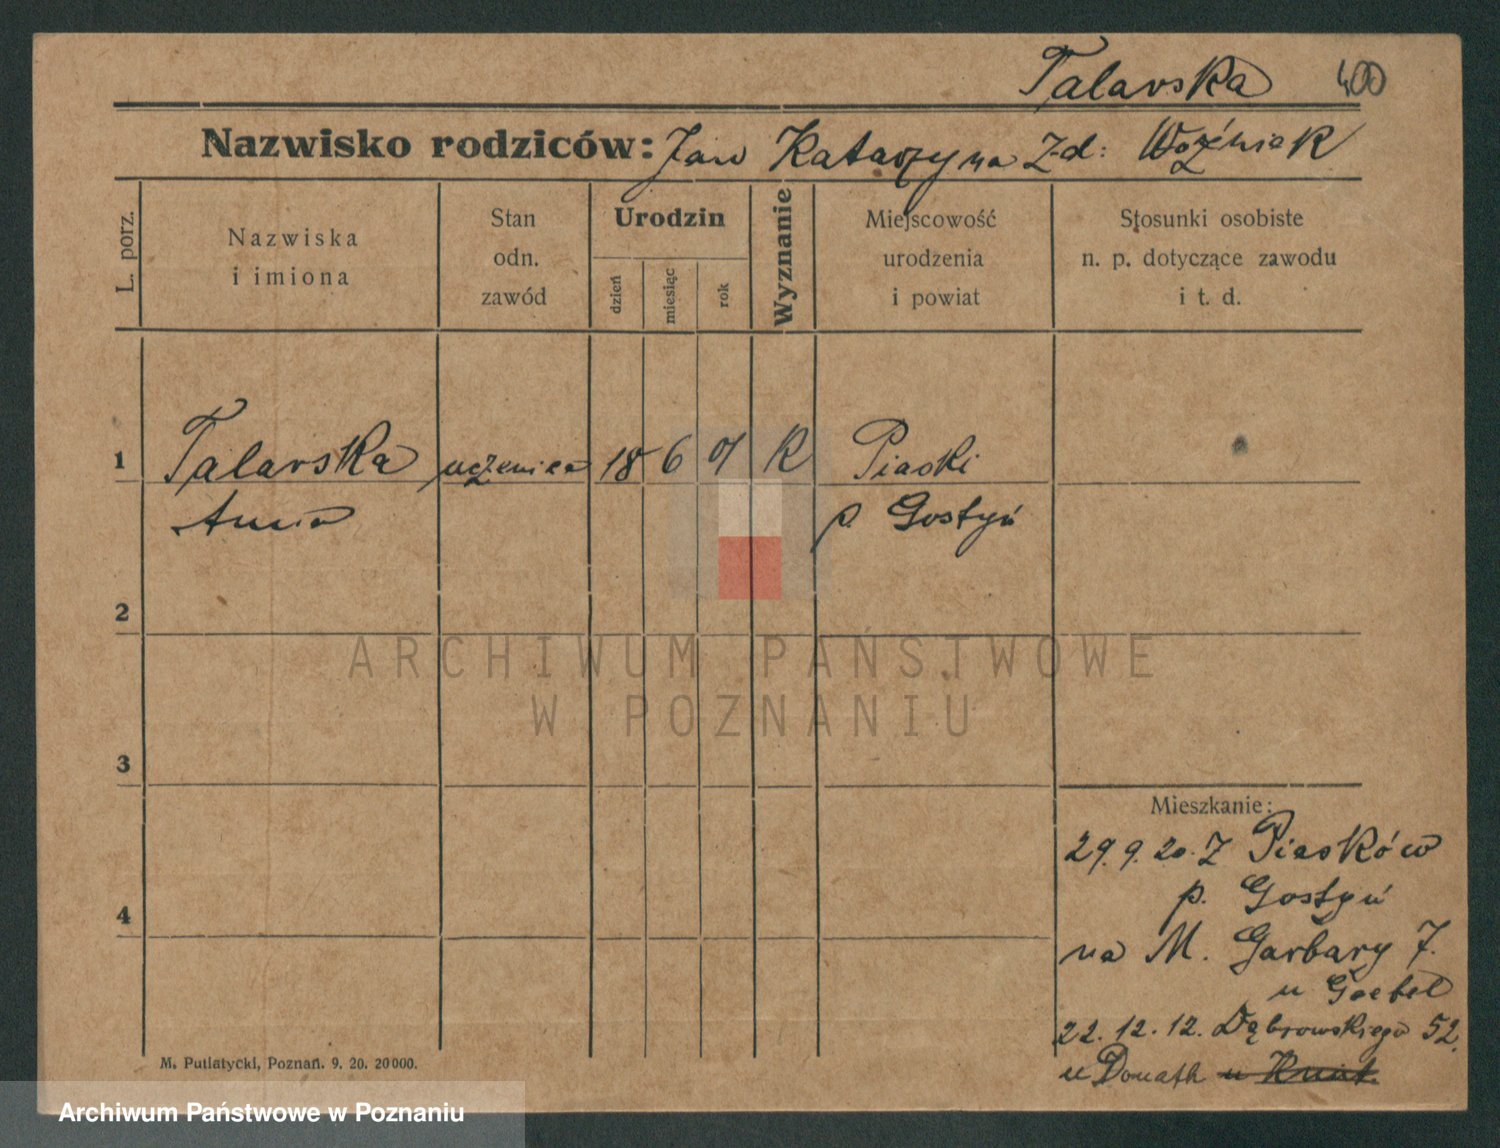 Talarska 400
Nazwisko rodziców: Jan Katarzyna z d: Woźniak
L. porz.
Nazwiska
i imiona
Stan
odn.
zawód
Urodzin
dzień
miesiąc
rok
Wyznanie
Miejscowość
urodzenia
i powiat
Stosunki osobiste
n. p. dotyczące zawodu
i t. d.
1 Talarska uczenica 18 6 07 K Piaski
Anna p. Gostyń
2
3
4
ARCHIWUM PAŃSTWOWE
W POZNANIU
Mieszkanie:
29. 9. 20. Z Piasków
p. Gostyń
na M. Garbary 7.
u Goebel
22. 12. 12. Dąbrowskiego 52.
u Donath u
M. Putiatycki, Poznań. 9. 20. 20000.
Archiwum Państwowe w Poznaniu